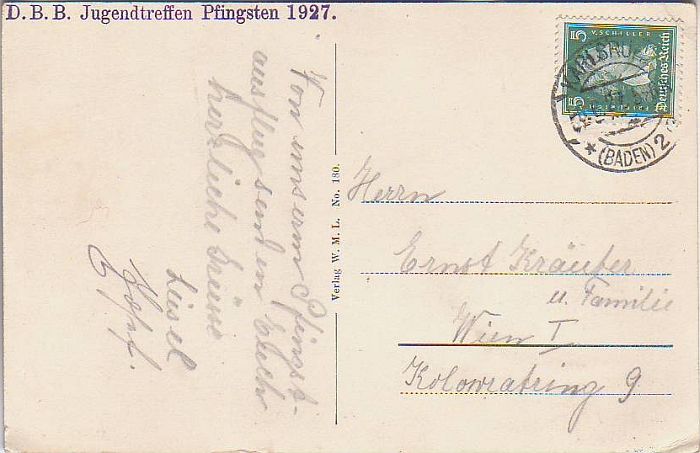 D.B.B. Jugendtreffen Pfingsten 1927.
Von unserm Pfingst-
ausflug senden Euch
herzliche Grüsse
Liesel
Josef.
Verlag W. M. L. No. 180.
V. SCHILLER
5 Deutsches Reich 5
KARLSRUHE
* (BADEN) 2
Herrn
Ernst Kräuter
u. Familie
Wien I
Kolowratring 9